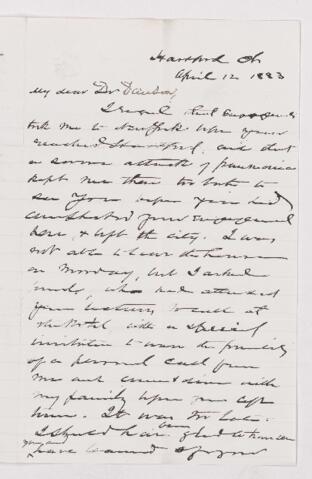 Hartford Ct
April 12 1883
My dear Dr Dawson
I regret that engagements
took me to Norfolk when you
reached Hartford, and that
a severe attack of pneumonia
kept me there too late to
see you before you had
completed your engagement
here, & left the city. I was
not able to leave the house
on Monday, but I asked
who had attended
your lectures to call at
the Hotel with a special
invitation to
of a personal call from
me and come & dine with
my family before you left
town. It was too late.
I should have been glad to
you and
have